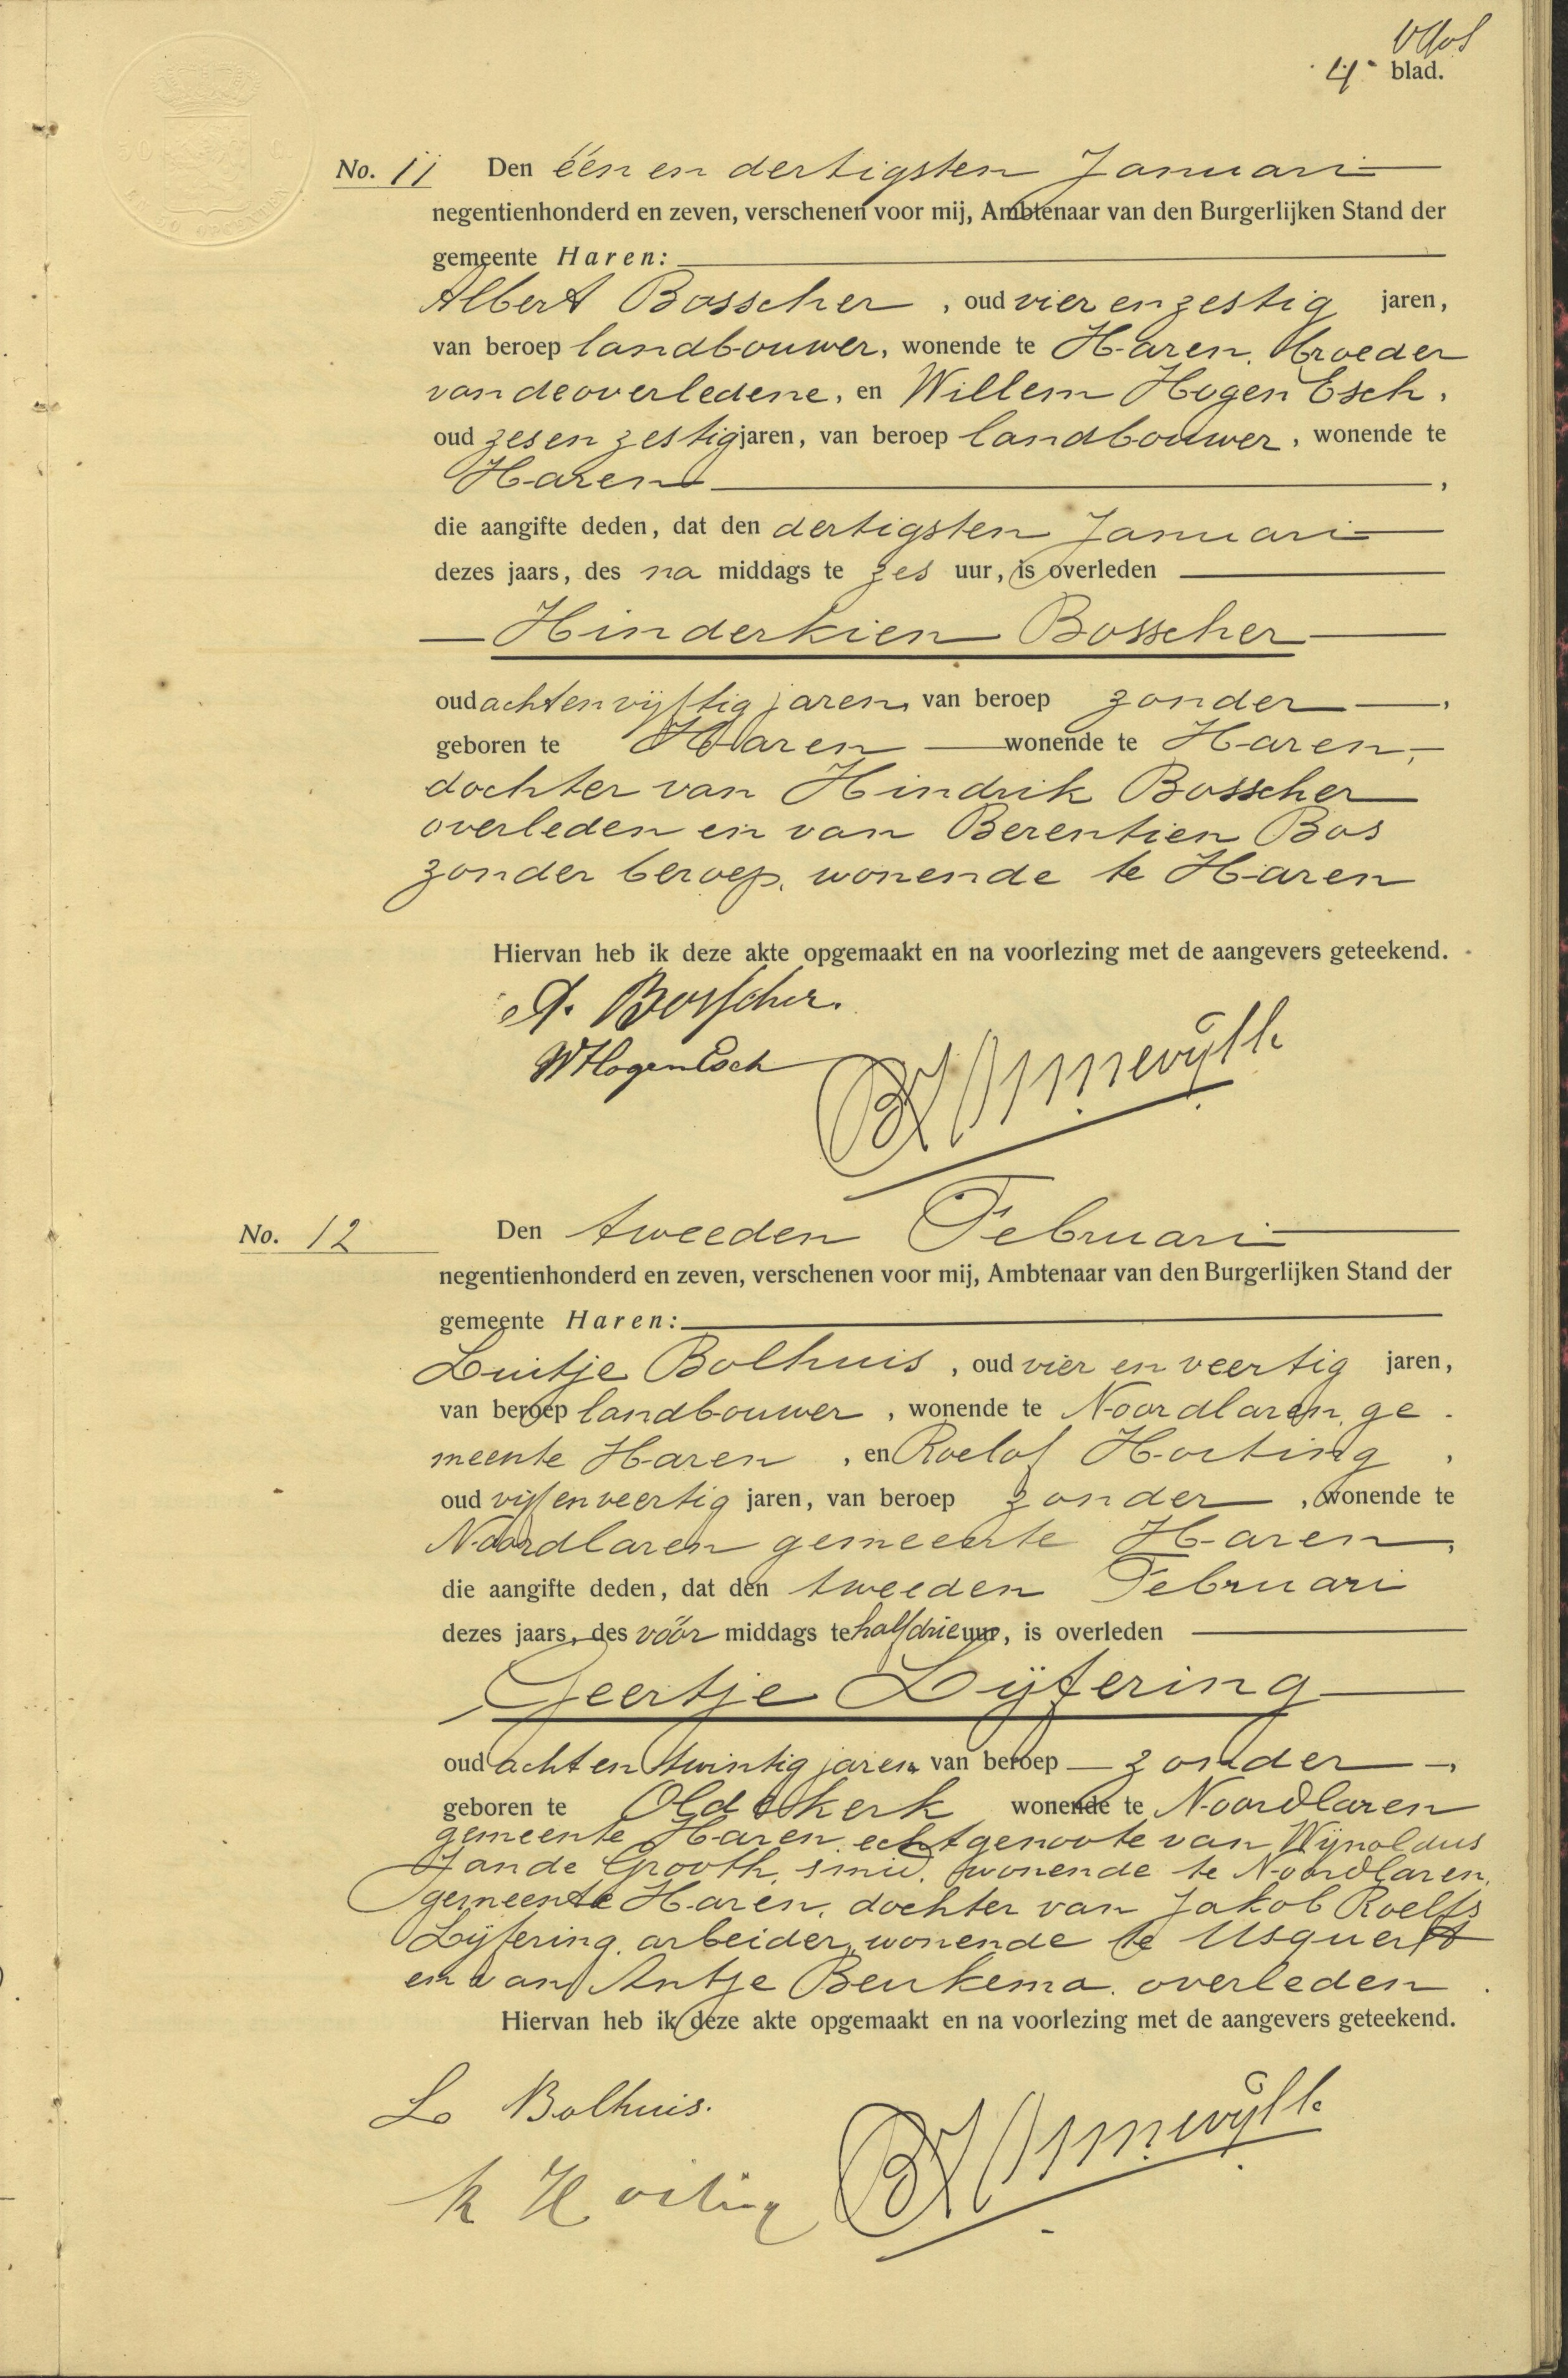 4e blad.
No. 11 Den één en dertigsten Januari
negentienhonderd en zeven, verschenen voor mij, Ambtenaar van den Burgerlijken Stand der
gemeente Haren:
Albert Bosscher, oud vier en zestig jaren,
van beroep landbouwer, wonende te Haren, broeder
van de overledene, en Willem Hogen Esch,
oud zes en zestig jaren, van beroep landbouwer, wonende te
Haren,
die aangifte deden, dat den dertigsten Januari
dezes jaars, des na middags te zes uur, is overleden
Hinderkien Bosscher
oud acht en vijftig jaren, van beroep zonder,
geboren te Haren wonende te Haren,
dochter van Hindrik Bosscher
overleden en van Berentien Bos
zonder beroep, wonende te Haren
Hiervan heb ik deze akte opgemaakt en na voorlezing met de aangevers geteekend.
A. Bosscher.
W HogenEsch
No. 12 Den tweeden Februari
negentienhonderd en zeven, verschenen voor mij, Ambtenaar van den Burgerlijken Stand der
gemeente Haren:
Luitje Bolhuis, oud vier en veertig jaren,
van beroep landbouwer, wonende te Noordlaren, ge-
meente Haren, en Roelof Hoiting,
oud vijf en veertig jaren, van beroep zonder, wonende te
Noordlaren gemeente Haren,
die aangifte deden, dat den tweeden Februari
dezes jaars, des vóór middags te half drie uur, is overleden
Geertje Lijfering
oud acht en twintig jaren, van beroep zonder,
geboren te Oldekerk wonende te Noordlaren
gemeente Haren, echtgenoote van Wijnoldus
Jan de Grooth, smid, wonende te Noordlaren,
gemeente Haren, dochter van Jakob Roelfs
Lijfering, arbeider, wonende te Usquert
en van Antje Beukema, overleden.
Hiervan heb ik deze akte opgemaakt en na voorlezing met de aangevers geteekend.
L Bolhuis.
R Hoiting